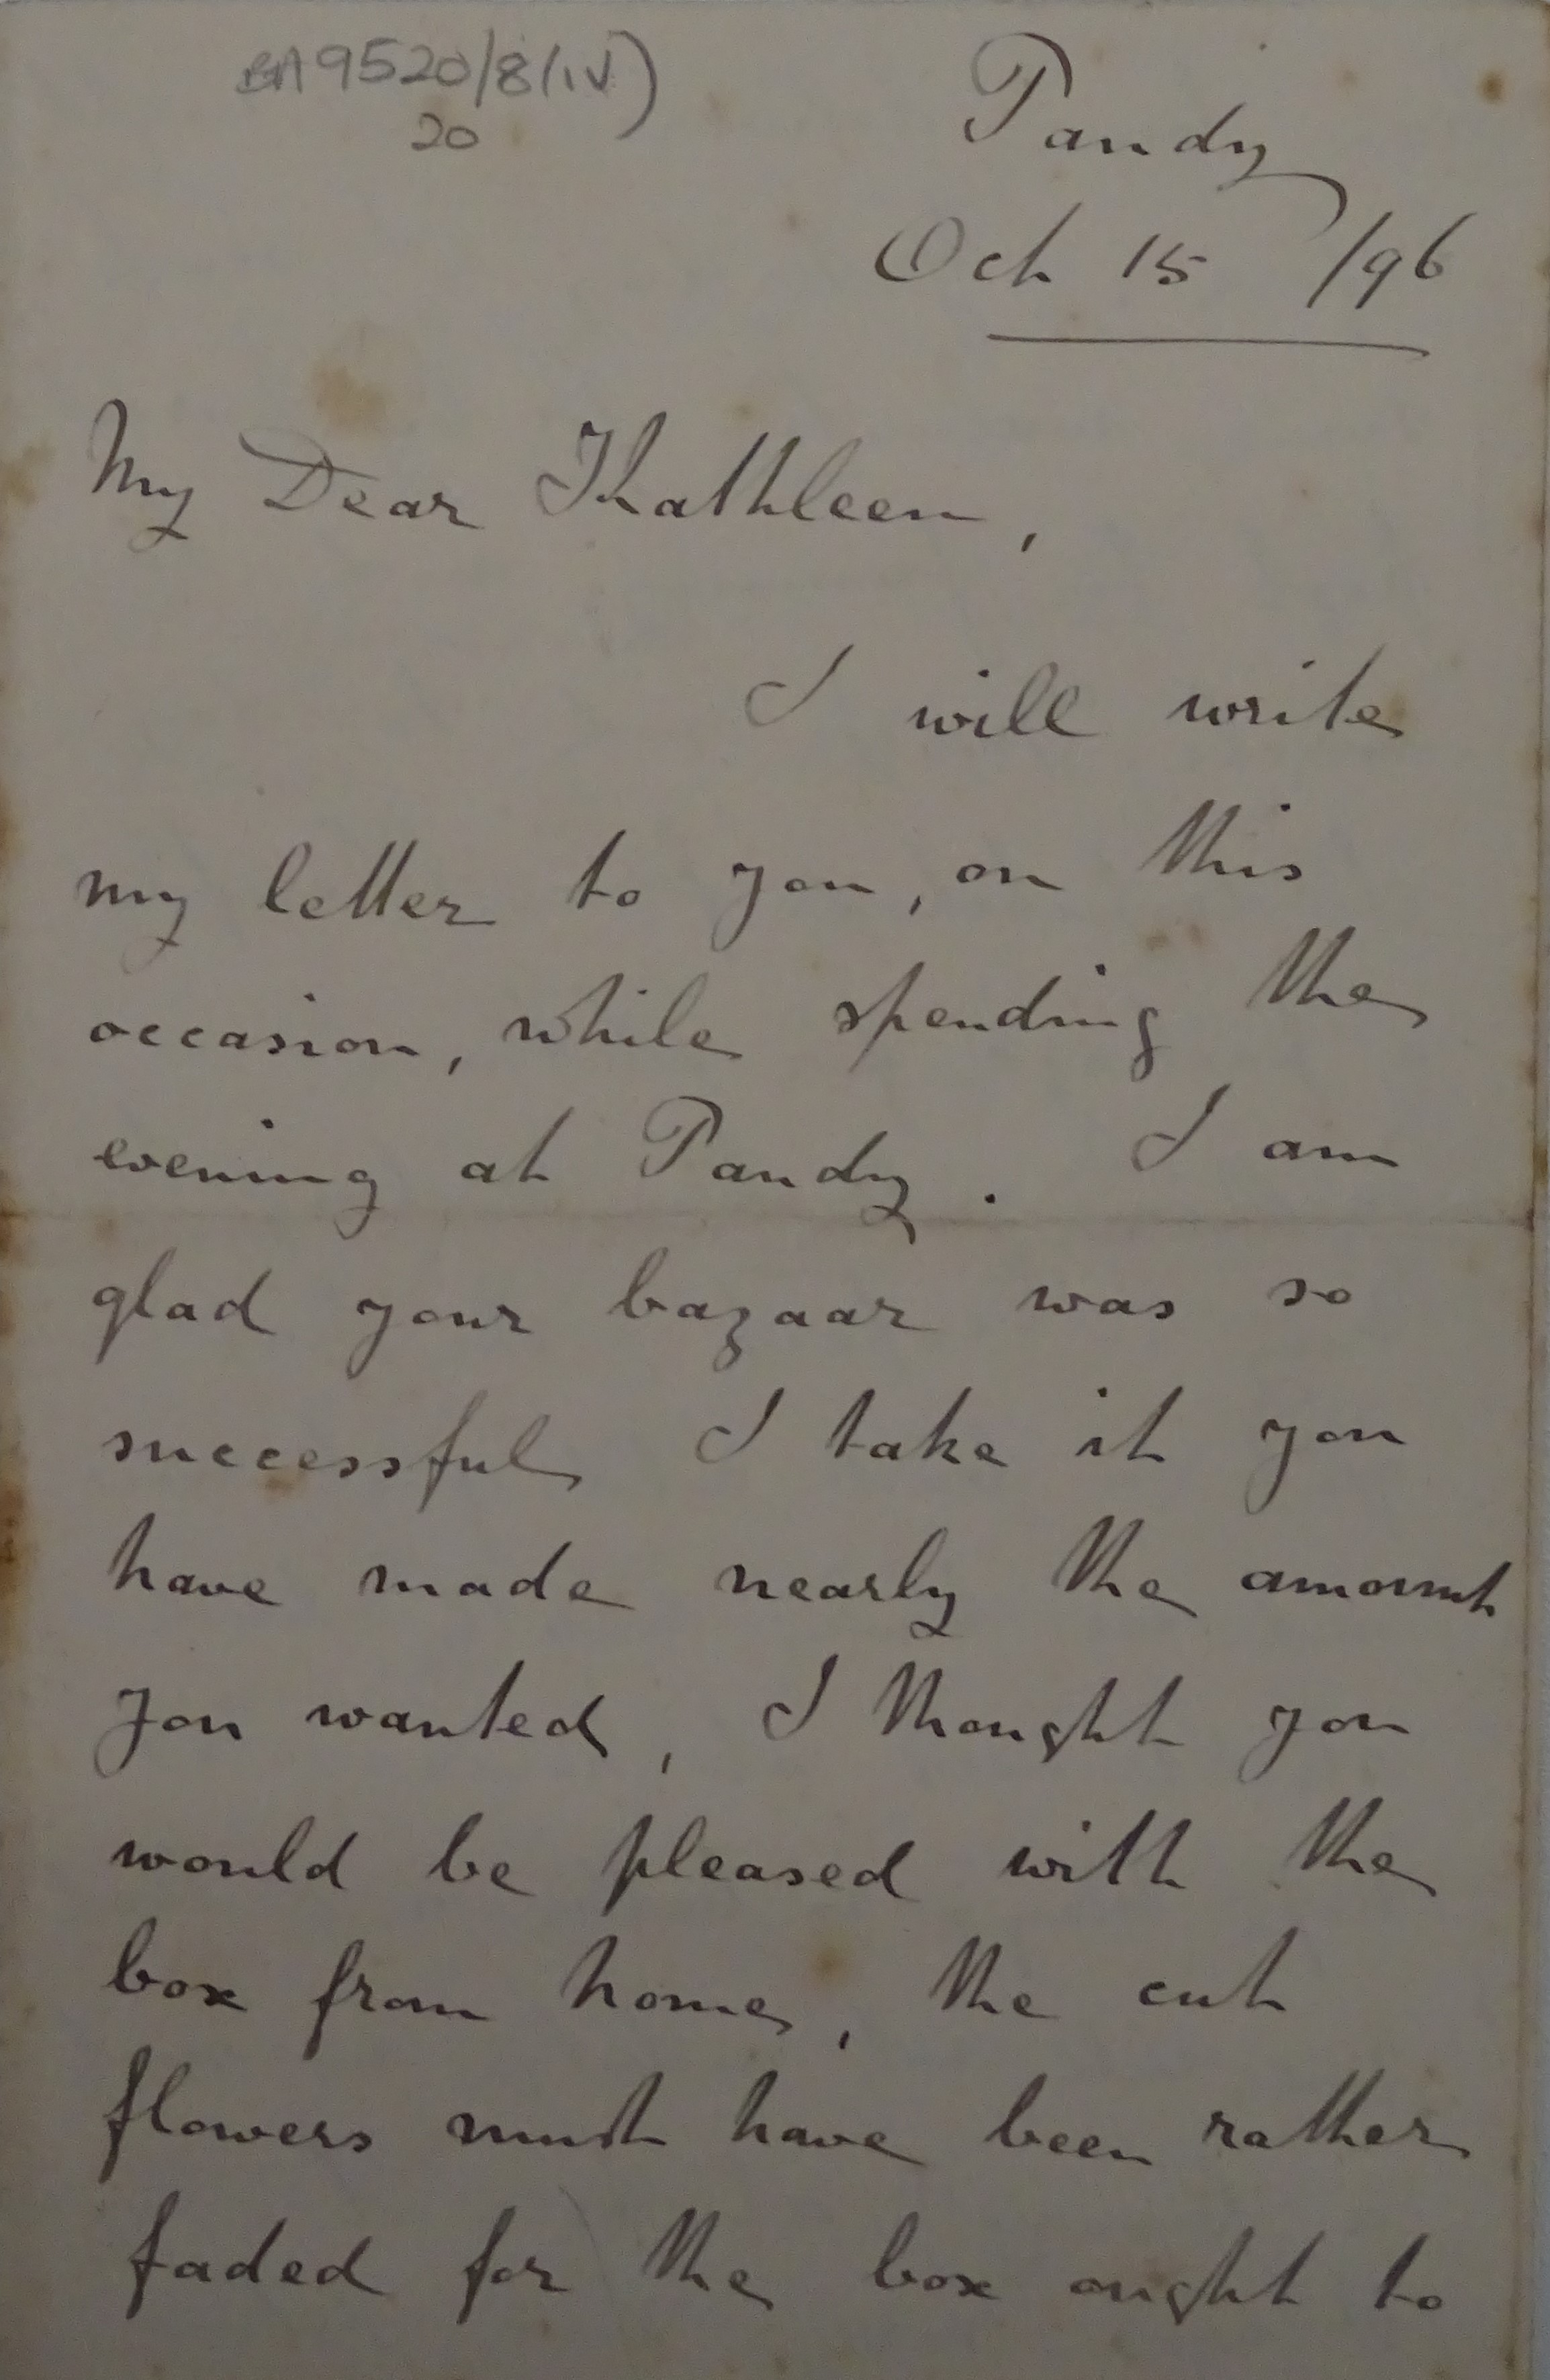 BA9520/8(iv)
20
Pandy
Oct 15 /96
My Dear Kathleen,
I will write
my letter to you, on this
occasion, while spending the
evening at Pandy. I am
glad your bazaar was so
successful I take it you
have made nearly the amount
you wanted, I thought you
would be pleased with the
box from home, the cut
flowers must have been rather
faded for the box ought to